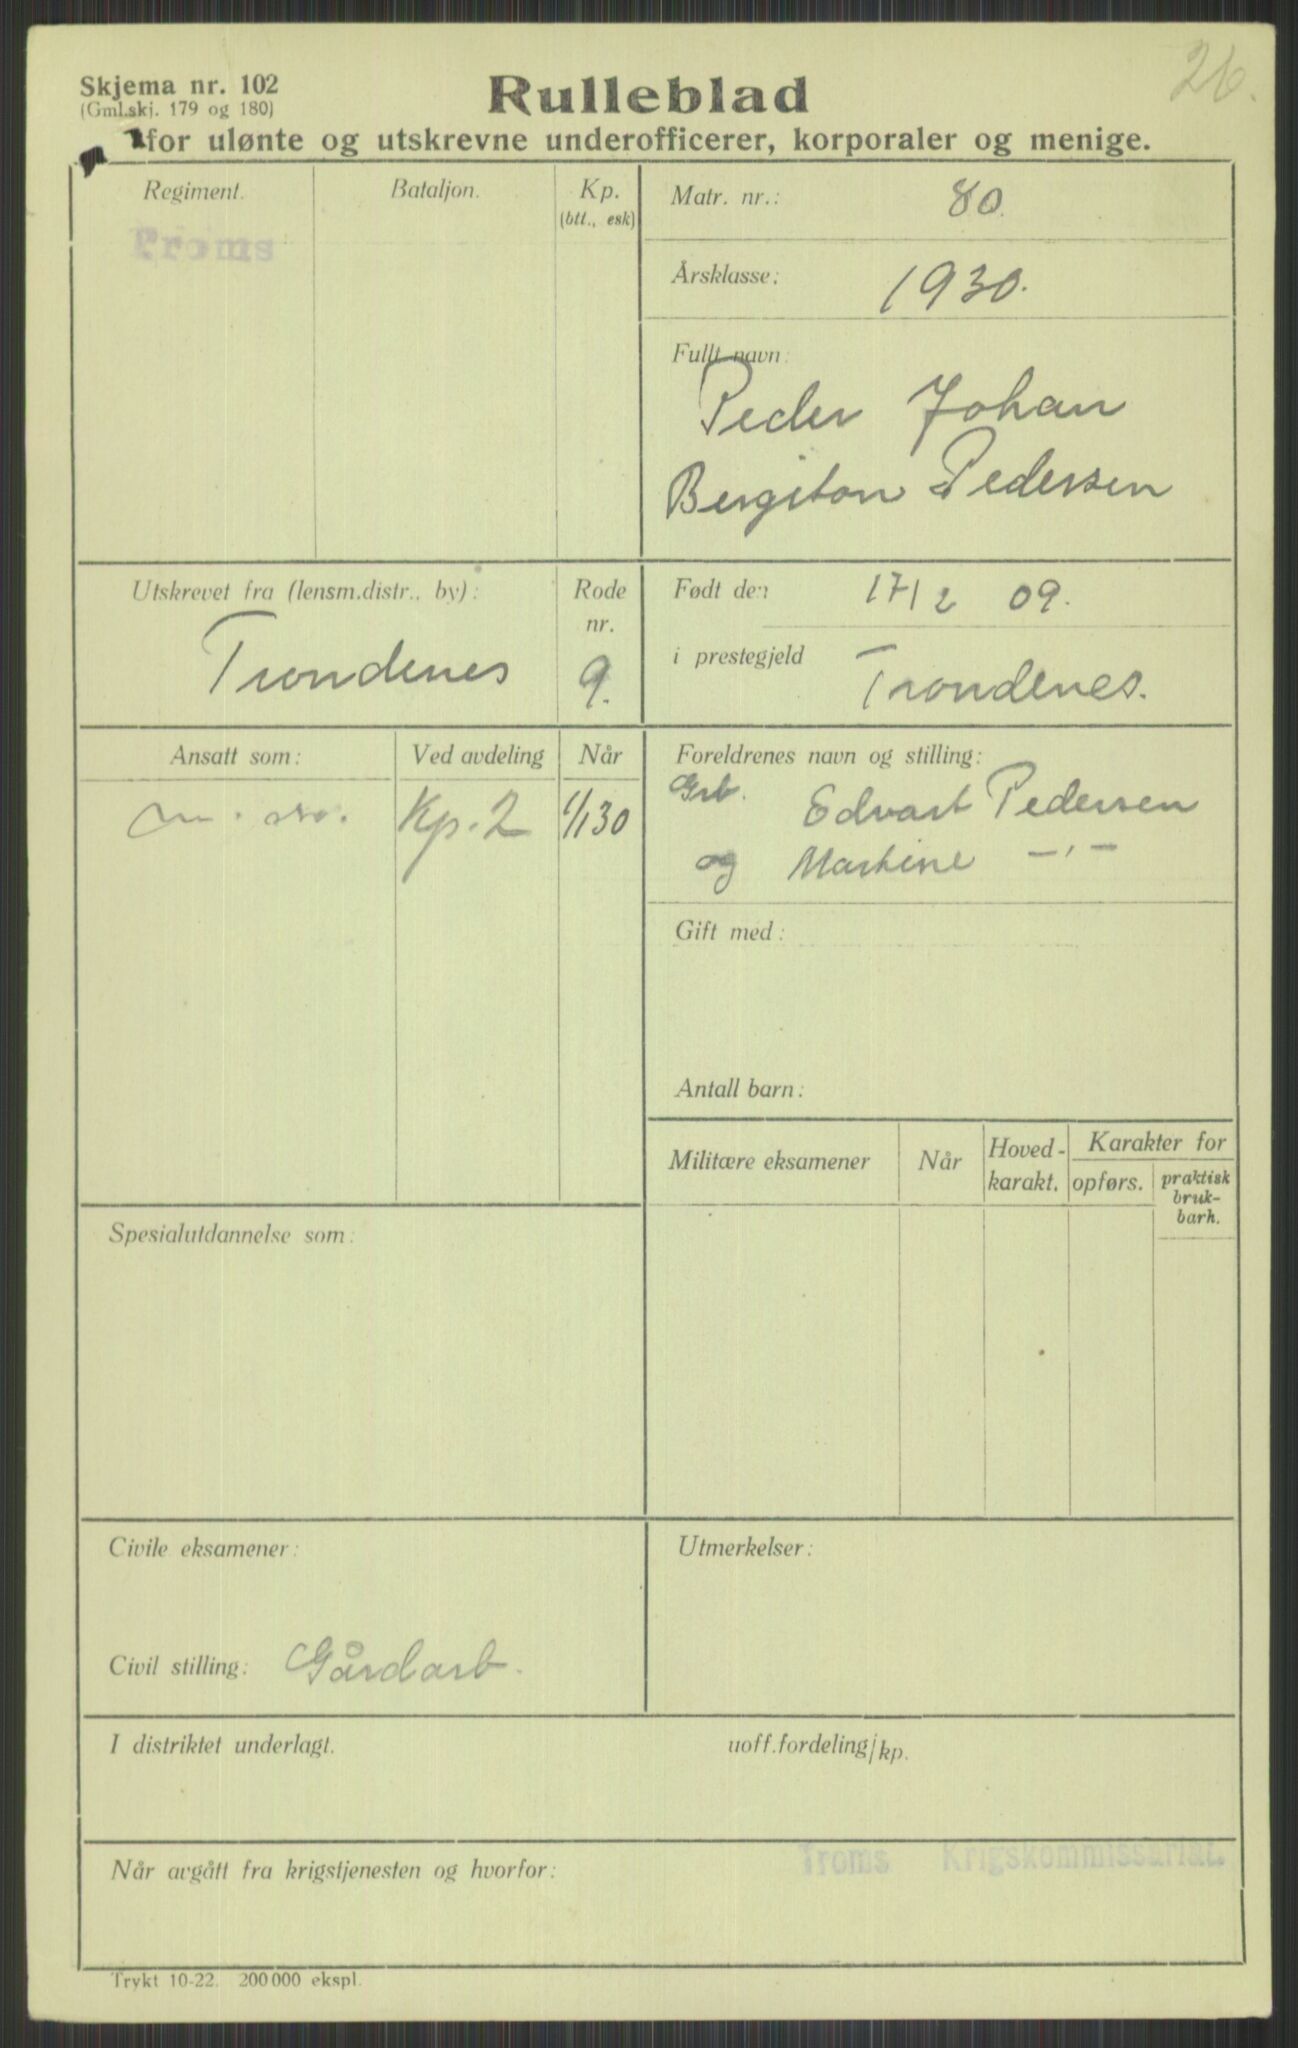 26.
Skjema nr. 102
(Gml.skj. 179 og 180)
Rulleblad
for ulønte og utskrevne underofficerer, korporaler og menige.
Regiment.
Troms
Bataljon.
Kp.
(btt., esk)
Matr. nr.: 80.
Årsklasse: 1930.
Fullt navn:
Peder Johan
Bergiton Pedersen
Utskrevet fra (lensm.distr., by):
Trondenes
Rode
nr.
9.
Født den 17/2 09.
i prestegjeld Trondenes.
Ansatt som:
Ved avdeling
Når
Kp. 2
1/1 30
Foreldrenes navn og stilling:
Grb. Edvart Pedersen
og Martine — " —
Gift med:
Antall barn:
Militære eksamener
Når
Hoved-
karakt.
Karakter for
opførs.
praktisk
bruk-
barh.
Spesialutdannelse som:
Civile eksamener:
Civil stilling: Gårdarb.
Utmerkelser:
I distriktet underlagt.
uoff.fordeling/kp.
Når avgått fra krigstjenesten og hvorfor:
Troms Krigskommissariat.
Trykt 10-22. 200 000 ekspl.